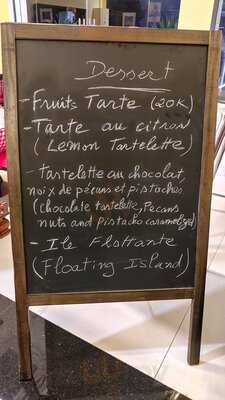 Dessert
- Fruits Tarte (20K)
- Tarte au citron
(Lemon Tartelette)
- tartelette au chocolat,
noix de pécans et pistaches
(chocolate tartelette, Pecans
nuts and pistachio caramelized)
- Ile Flottante
(Floating Island)